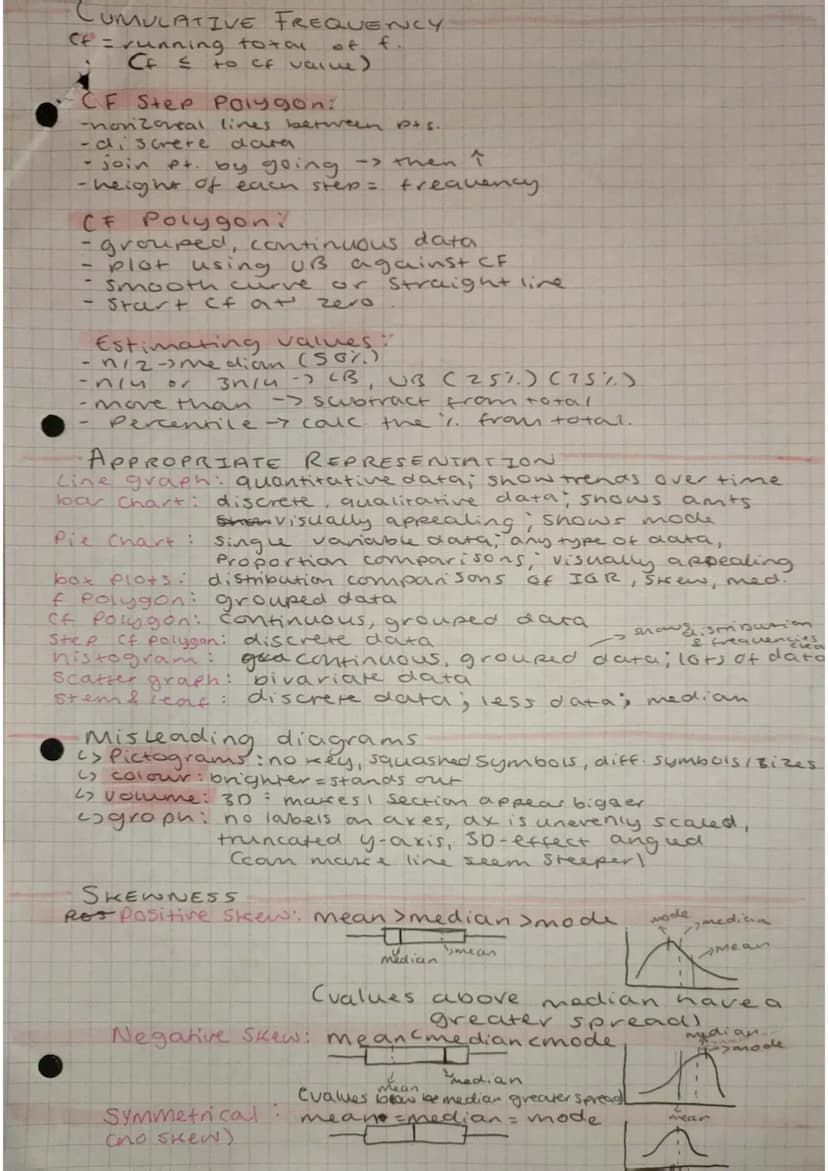 CUMULATIVE FREQUENCY
Cf = running total of f.
(Cf ≤ to cf value)
CF Step Polygon:
-horizontal lines between pts.
-discrete data
- join pt. by going → then ↑
-height of each step = frequency
CF Polygon:
- grouped, continuous data
- plot using UB against CF
- smooth curve or straight line
- start cf at zero
Estimating values:
- n/2 → median (50%)
- n/4 or 3n/4 → LB, UB (25%) (75%)
- more than → subtract from total
- Percentile → calc the % from total.
APPROPRIATE REPRESENTATION
Line graph: quantitative data; show trends over time
bar chart: discrete, qualitative data; shows amts
visually appealing; shows mode
Pie Chart: single variable data; any type of data,
Proportion comparisons; visually appealing
box plots: distribution comparisons of IQR, skew, med.
f polygon: grouped data
Cf Polygon: continuous, grouped data
Step Cf polygon: discrete data → shows distribution & frequencies
histogram: continuous, grouped data; lots of data
Scatter graph: bivariate data
Stem & leaf: discrete data; less data; median
Misleading diagrams
↳ Pictograms: no key, squashed symbols, diff. symbols/sizes
↳ colour: brighter = stands out
↳ volume: 3D = makes 1 section appear bigger
↳ graph: no labels on axes, ax is unevenly scaled,
truncated y-axis, 3D-effect angled
(can make line seem steeper)
SKEWNESS
Pos Positive skew: mean > median > mode
mode median
mean
median mean
(values above median have a
greater spread)
Negative skew: mean < median < mode
median
mode
mean median
(values below median greater spread)
mean
Symmetrical: mean = median = mode
(no skew)